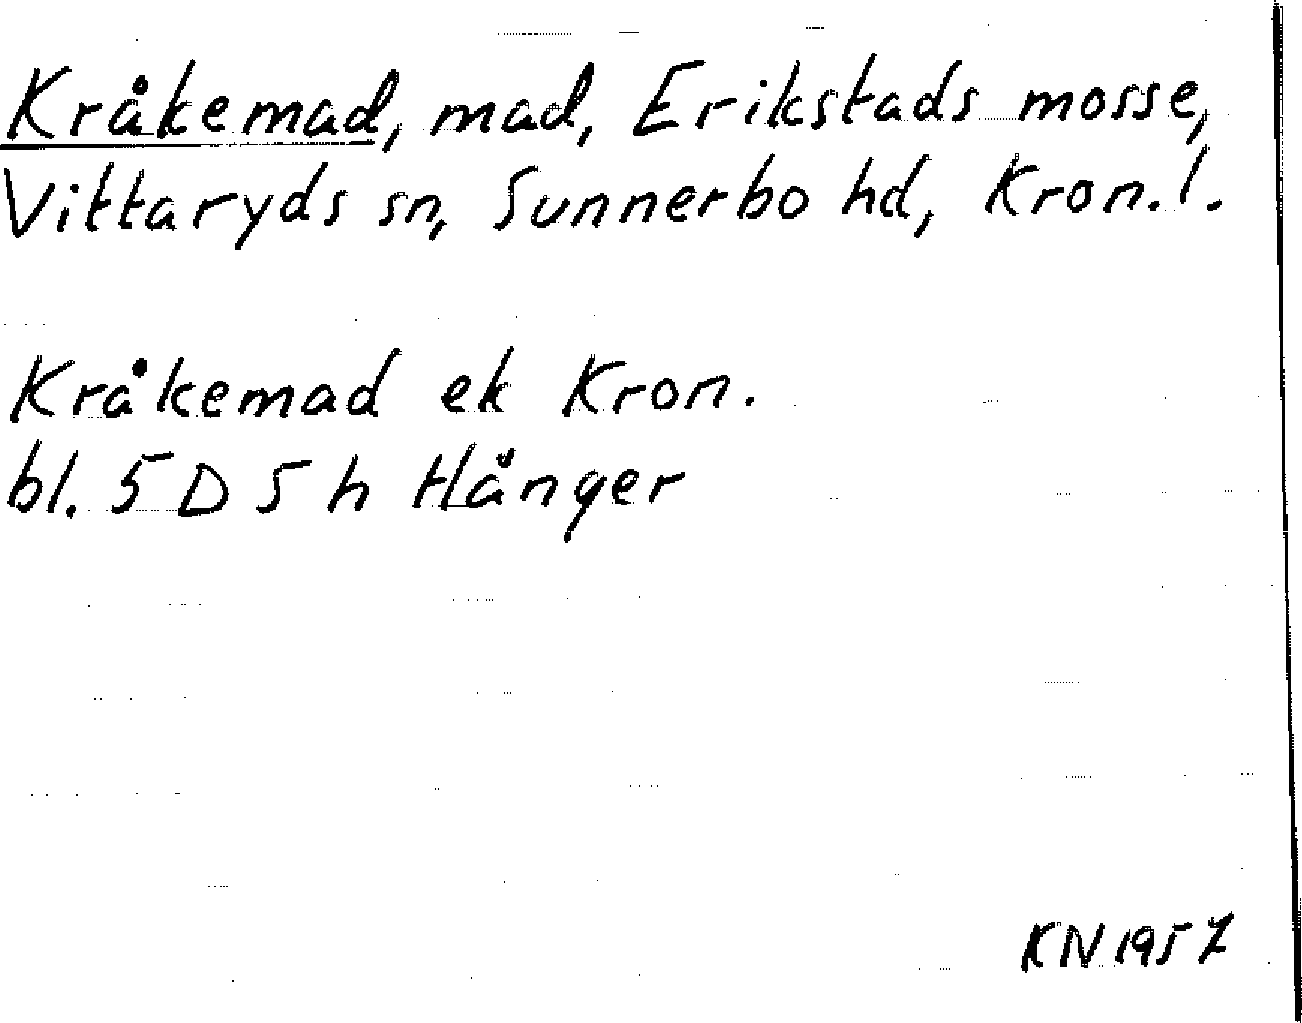 Kråkemad, mad, Erikstads mosse,
Vittaryds sn, Sunnerbo hd, Kron.l.
Kråkemad ek Kron.
bl. 5 D 5 h Hånger
KN 1957